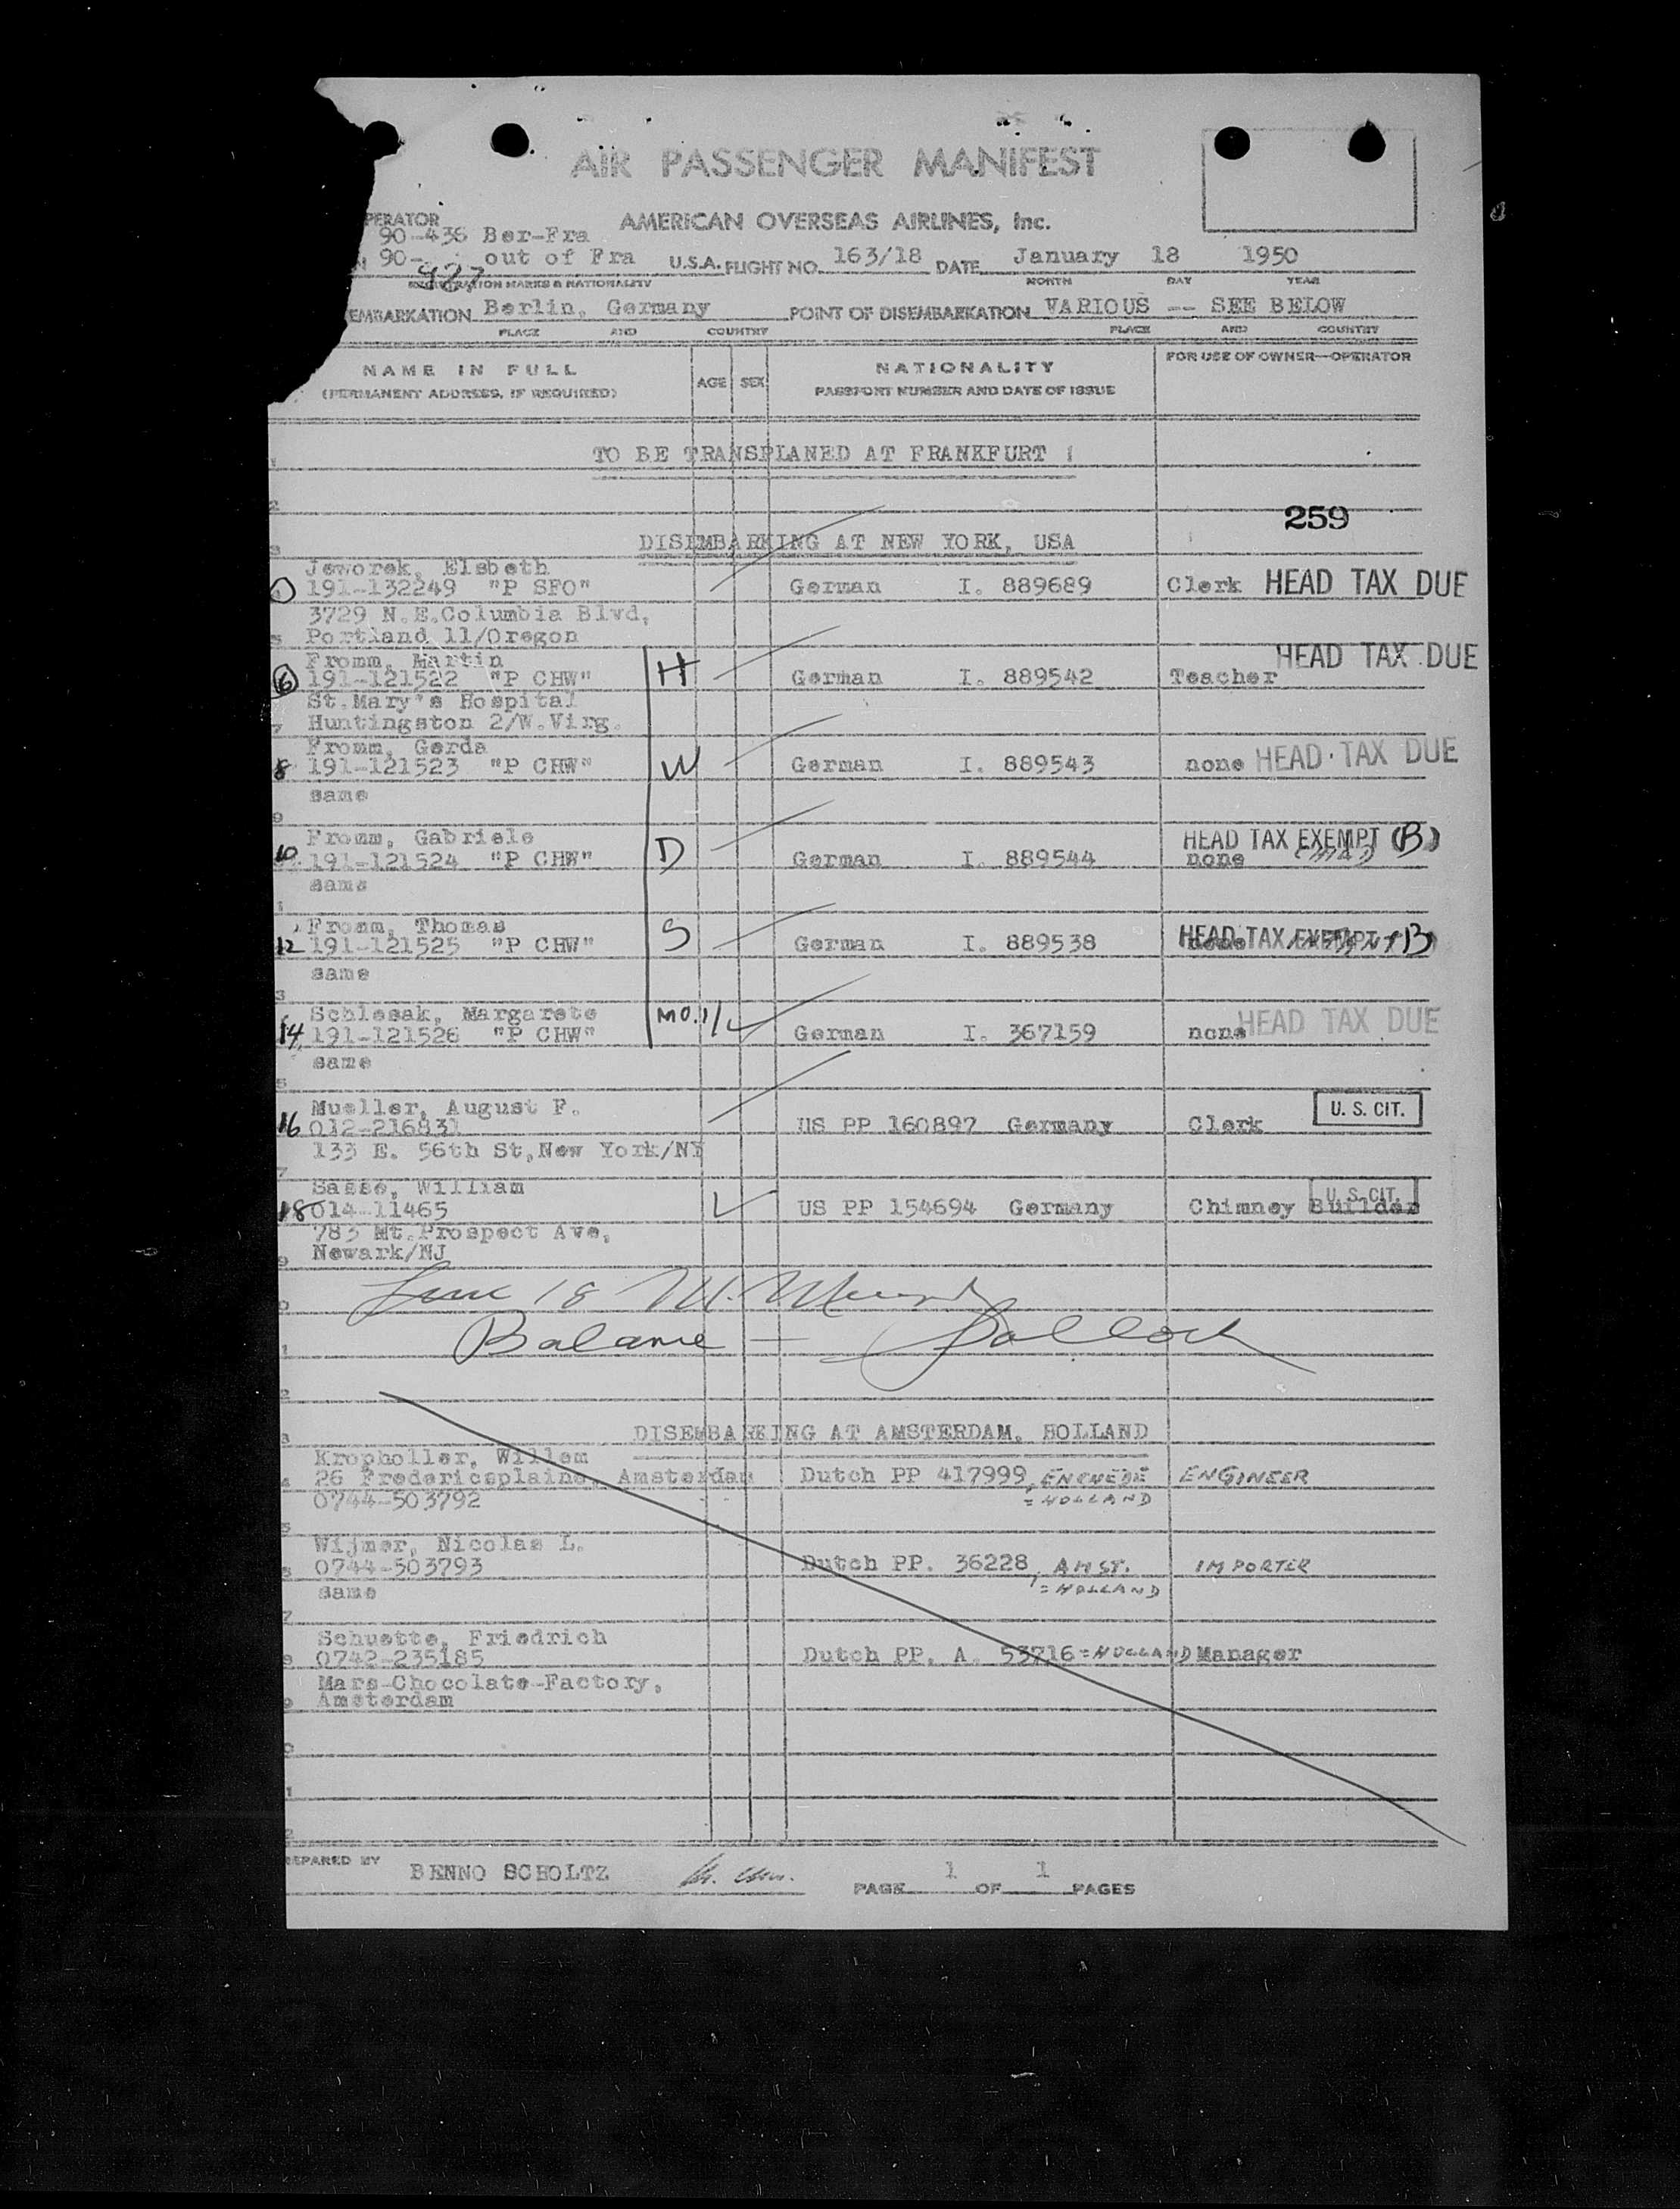 AIR PASSENGER MANIFEST
PERATOR
AMERICAN OVERSEAS AIRLINES, Inc.
90-436 Ber-Fra
90- out of Fra U.S.A. FLIGHT NO. 163/18 DATE January 18 1950
927
REGISTRATION MARKS & NATIONALITY MONTH DAY YEAR
EMBARKATION Berlin, Germany POINT OF DISEMBARKATION VARIOUS -- SEE BELOW
PLACE AND COUNTRY PLACE AND COUNTRY
NAME IN FULL
(PERMANENT ADDRESS, IF REQUIRED)
AGE SEX
NATIONALITY
PASSPORT NUMBER AND DATE OF ISSUE
FOR USE OF OWNER—OPERATOR
TO BE TRANSPLANED AT FRANKFURT
259
DISEMBARKING AT NEW YORK, USA
Jeworek, Elsbeth
191-132249 "P SFO" German I. 889689 Clerk HEAD TAX DUE
3729 N.E.Columbia Blvd,
Portland 11/Oregon
Fromm, Martin HEAD TAX DUE
6 191-121522 "P CHW" H German I. 889542 Teacher
St.Mary's Hospital
7 Huntingston 2/W.Virg.
Fromm, Gerda
8 191-121523 "P CHW" W German I. 889543 none HEAD TAX DUE
same
9
Fromm, Gabriele HEAD TAX EXEMPT (B)
10 191-121524 "P CHW" D German I. 889544 none
same
1
Fromm, Thomas
12 191-121525 "P CHW" S German I. 889538 none HEAD TAX EXEMPT B
same
3
Schlesak, Margarete
14 191-121526 "P CHW" MO. German I. 367159 none HEAD TAX DUE
same
5
Mueller, August F. U. S. CIT.
16 012-216831 US PP 160897 Germany Clerk
133 E. 56th St,New York/NY
7
Sasse, William U. S. CIT.
18 014-11465 US PP 154694 Germany Chimney Builder
783 Mt.Prospect Ave,
9 Newark/NJ
18 M.
Balance —
DISEMBARKING AT AMSTERDAM, HOLLAND
Kropholler, Willem
26 Fredericsplaine, Amsterdam Dutch PP 417999, ENCHEDE ENGINEER
0744-503792 = HOLLAND
Wijmer, Nicolas L.
0744-503793 Dutch PP. 36228, AMST. IMPORTER
same = HOLLAND
7
Schuette, Friedrich
0742-235185 Dutch PP. A. 53716 = HOLLAND Manager
Mars-Chocolate-Factory,
Amsterdam
REPARED BY BENNO SCHOLTZ
PAGE 1 OF 1 PAGES